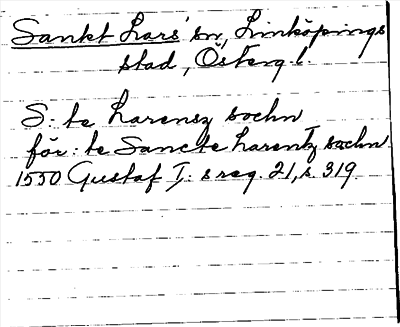 Sankt Lars' sn, Linköpings
stad, Österg. l.
S: te Larensz sochn
för: te Sancte Larentz sochn
1550 Gustaf I: s reg. 21, s. 319.